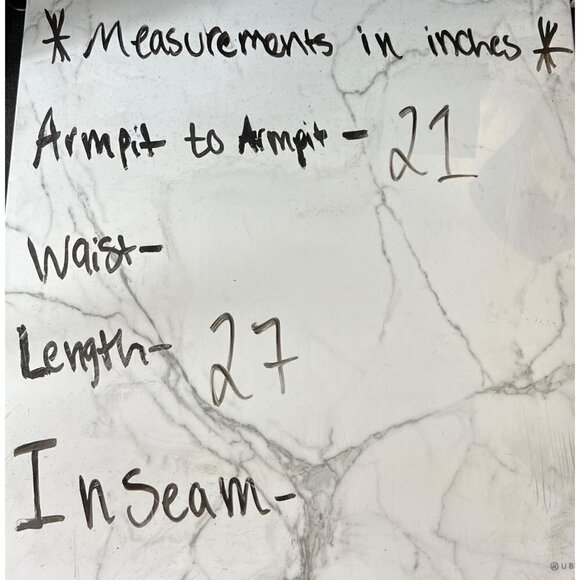 * Measurements in inches *
Armpit to Armpit - 21
Waist-
Length- 27
Inseam-